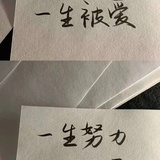 一生被爱
一生努力